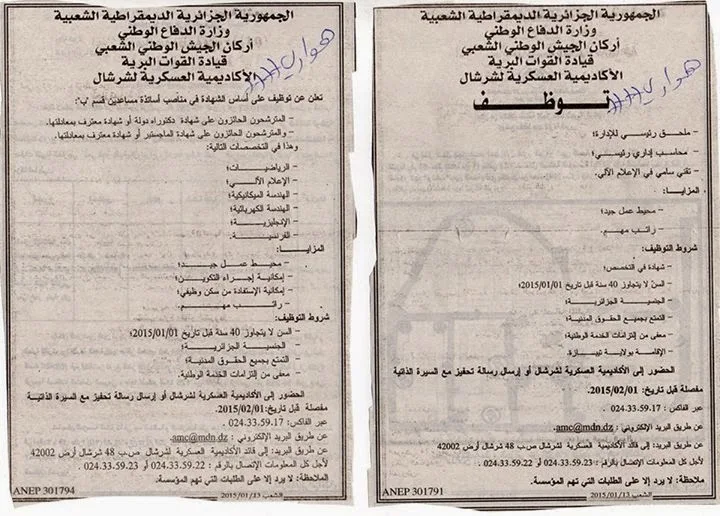 الجمهورية الجزائرية الديمقراطية الشعبية
وزارة الدفاع الوطني
أركان الجيش الوطني الشعبي
قيادة القوات البرية
الأكاديمية العسكرية لشرشال
هواري
توظف
– ملحق رئيسي للإدارة؛
– محاسب إداري رئيسي؛
– تقني سامي في الإعلام الآلي.
المزايا:
– محيط عمل جيد؛
– راتب مهم.
شروط التوظيف:
– شهادة في التخصص؛
– السن لا يتجاوز 40 سنة قبل تاريخ 2015/01/01؛
– الجنسية الجزائرية؛
– التمتع بجميع الحقوق المدنية؛
– معفى من إلتزامات الخدمة الوطنية؛
– الإقامة بولاية تيبازة.
الحضور إلى الأكاديمية العسكرية لشرشال أو إرسال رسالة تحفيز مع السيرة الذاتية
مفصلة قبل تاريخ: 2015/02/01.
عبر الفاكس: 024.33.59.17
عن طريق البريد الإلكتروني : amc@mdn.dz.
عن طريق البريد: إلى قائد الأكاديمية العسكرية لشرشال ص.ب 48 شرشال أرض 42002
لأجل كل المعلومات الإتصال بالرقم : 024.33.59.22 أو 024.33.59.23
ملاحظة: لا يرد إلا على الطلبات التي تهم المؤسسة.
ANEP 301791
الشعب 2015/01/13
الجمهورية الجزائرية الديمقراطية الشعبية
وزارة الدفاع الوطني
أركان الجيش الوطني الشعبي
قيادة القوات البرية
الأكاديمية العسكرية لشرشال
هواري
تعلن عن توظيف على أساس الشهادة في مناصب أساتذة مساعدين قسم "ب":
– المترشحون الحائزون على شهادة دكتوراه دولة أو شهادة معترف بمعادلتها.
– والمترشحون الحائزون على شهادة الماجستير أو شهادة معترف بمعادلتها.
وهذا في التخصصات التالية:
– الرياضيات؛
– الإعلام الآلي؛
– الهندسة الميكانيكية؛
– الهندسة الكهربائية؛
– الإنجليزية؛
– الفرنسية.
المزايا:
– محيط عمل جيد؛
– إمكانية إجراء التكوين؛
– إمكانية الإستفادة من سكن وظيفي؛
– راتب مهم.
شروط التوظيف:
– السن لا يتجاوز 40 سنة قبل تاريخ 2015/01/01؛
– الجنسية الجزائرية؛
– التمتع بجميع الحقوق المدنية؛
– معفى من إلتزامات الخدمة الوطنية.
الحضور إلى الأكاديمية العسكرية لشرشال أو إرسال رسالة تحفيز مع السيرة الذاتية
مفصلة قبل تاريخ: 2015/02/01.
عبر الفاكس: 024.33.59.17
عن طريق البريد الإلكتروني : amc@mdn.dz.
عن طريق البريد: إلى قائد الأكاديمية العسكرية لشرشال ص.ب 48 شرشال أرض 42002
لأجل كل المعلومات الإتصال بالرقم : 024.33.59.22 أو 024.33.59.23
ملاحظة: لا يرد إلا على الطلبات التي تهم المؤسسة.
ANEP 301794
الشعب 2015/01/13